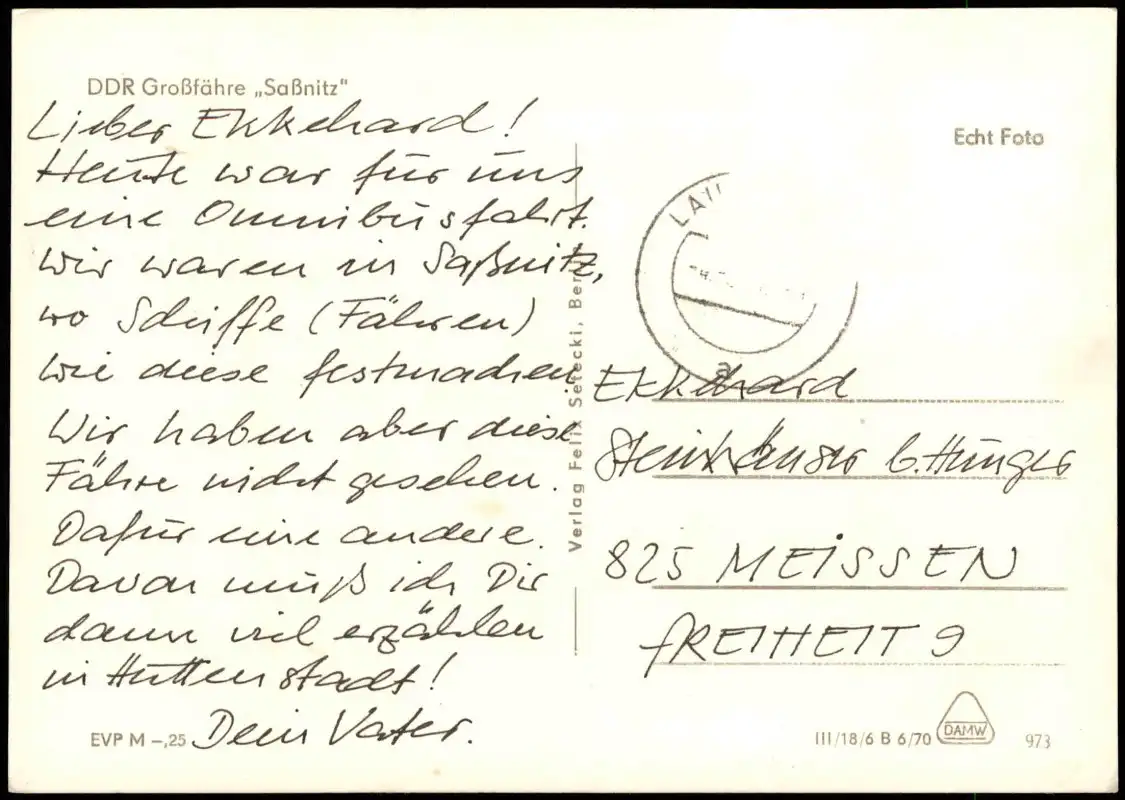 DDR Großfähre „Saßnitz"
Lieber Ekkehard!
Heute war für uns
eine Omnibusfahrt.
Wir waren in Saßnitz,
wo Schiffe (Fähren)
wie diese festmachen.
Wir haben aber diese
Fähre nicht gesehen.
Dafür eine andere.
Davon muß ich Dir
dann viel erzählen
in Hüttenstadt!
Dein Vater.
EVP M –,25
Verlag Felix Setecki, Berlin
Echt Foto
a
Ekkehard
Steinhäuser b. Hunger
825 MEISSEN
FREIHEIT 9
III/18/6 B 6/70
DAMW
973